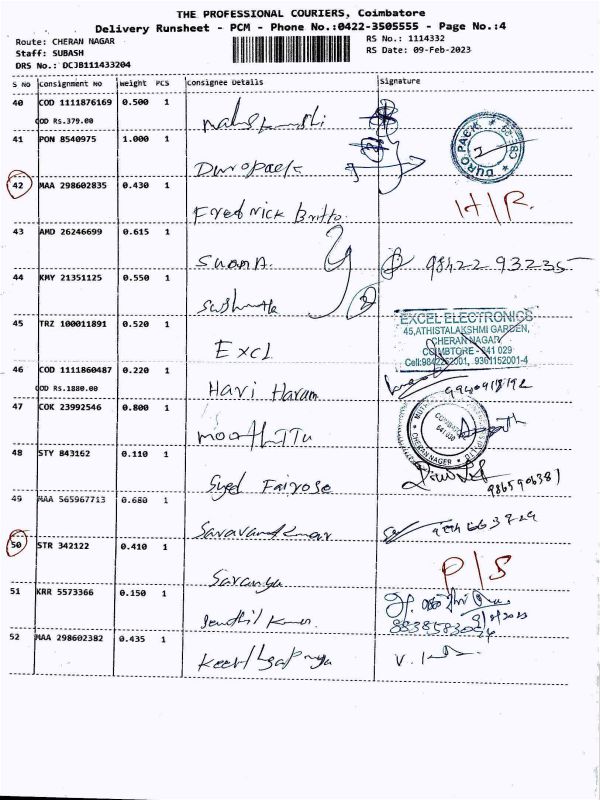 THE PROFESSIONAL COURIERS, Coimbatore
Delivery Runsheet - PCM - Phone No.:0422-3505555 - Page No.:4
Route: CHERAN NAGAR
RS No.: 1114332
Staff: SUBASH
RS Date: 09-Feb-2023
DRS No.: DCJB111433204
S No Consignment No Weight PCS Consignee Details Signature
40 COD 1111876169 0.500 1
COD RS.379.00
41 PON 8540975 1.000 1 Duropack
DURO PACK
42 MAA 298602835 0.430 1 Fredrick Britto
H/R.
43 AMD 26246699 0.615 1 Suman. 98422 93235
44 KMY 21351125 0.550 1
45 TRZ 100011891 0.520 1 Excl
EXCEL ELECTRONICS
45,ATHISTALAKSHMI GARDEN,
CHERAN NAGAR
COIMBTORE - 641 029
46 COD 1111860487 0.220 1 Hari Haran
COD RS.1880.00
47 COK 23992546 0.800 1 moothttu
CHERAN NAGER
48 STY 843162 0.110 1 Syed Fairose
9865906381
49 MAA 565967713 0.680 1 Saravanakumar
50 STR 342122 0.410 1 Saranya
P/S
51 KRR 5573366 0.150 1 Senthil Kumar
52 MAA 298602382 0.435 1